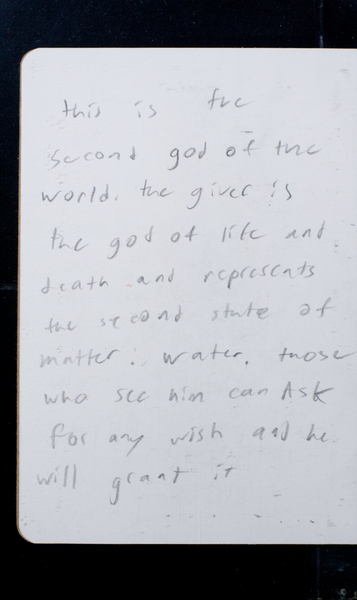 this is the
second god of the
world. the giver is
the god of life and
death and represents
the second state of
matter. water. those
who see him can Ask
for any wish and he
will grant it